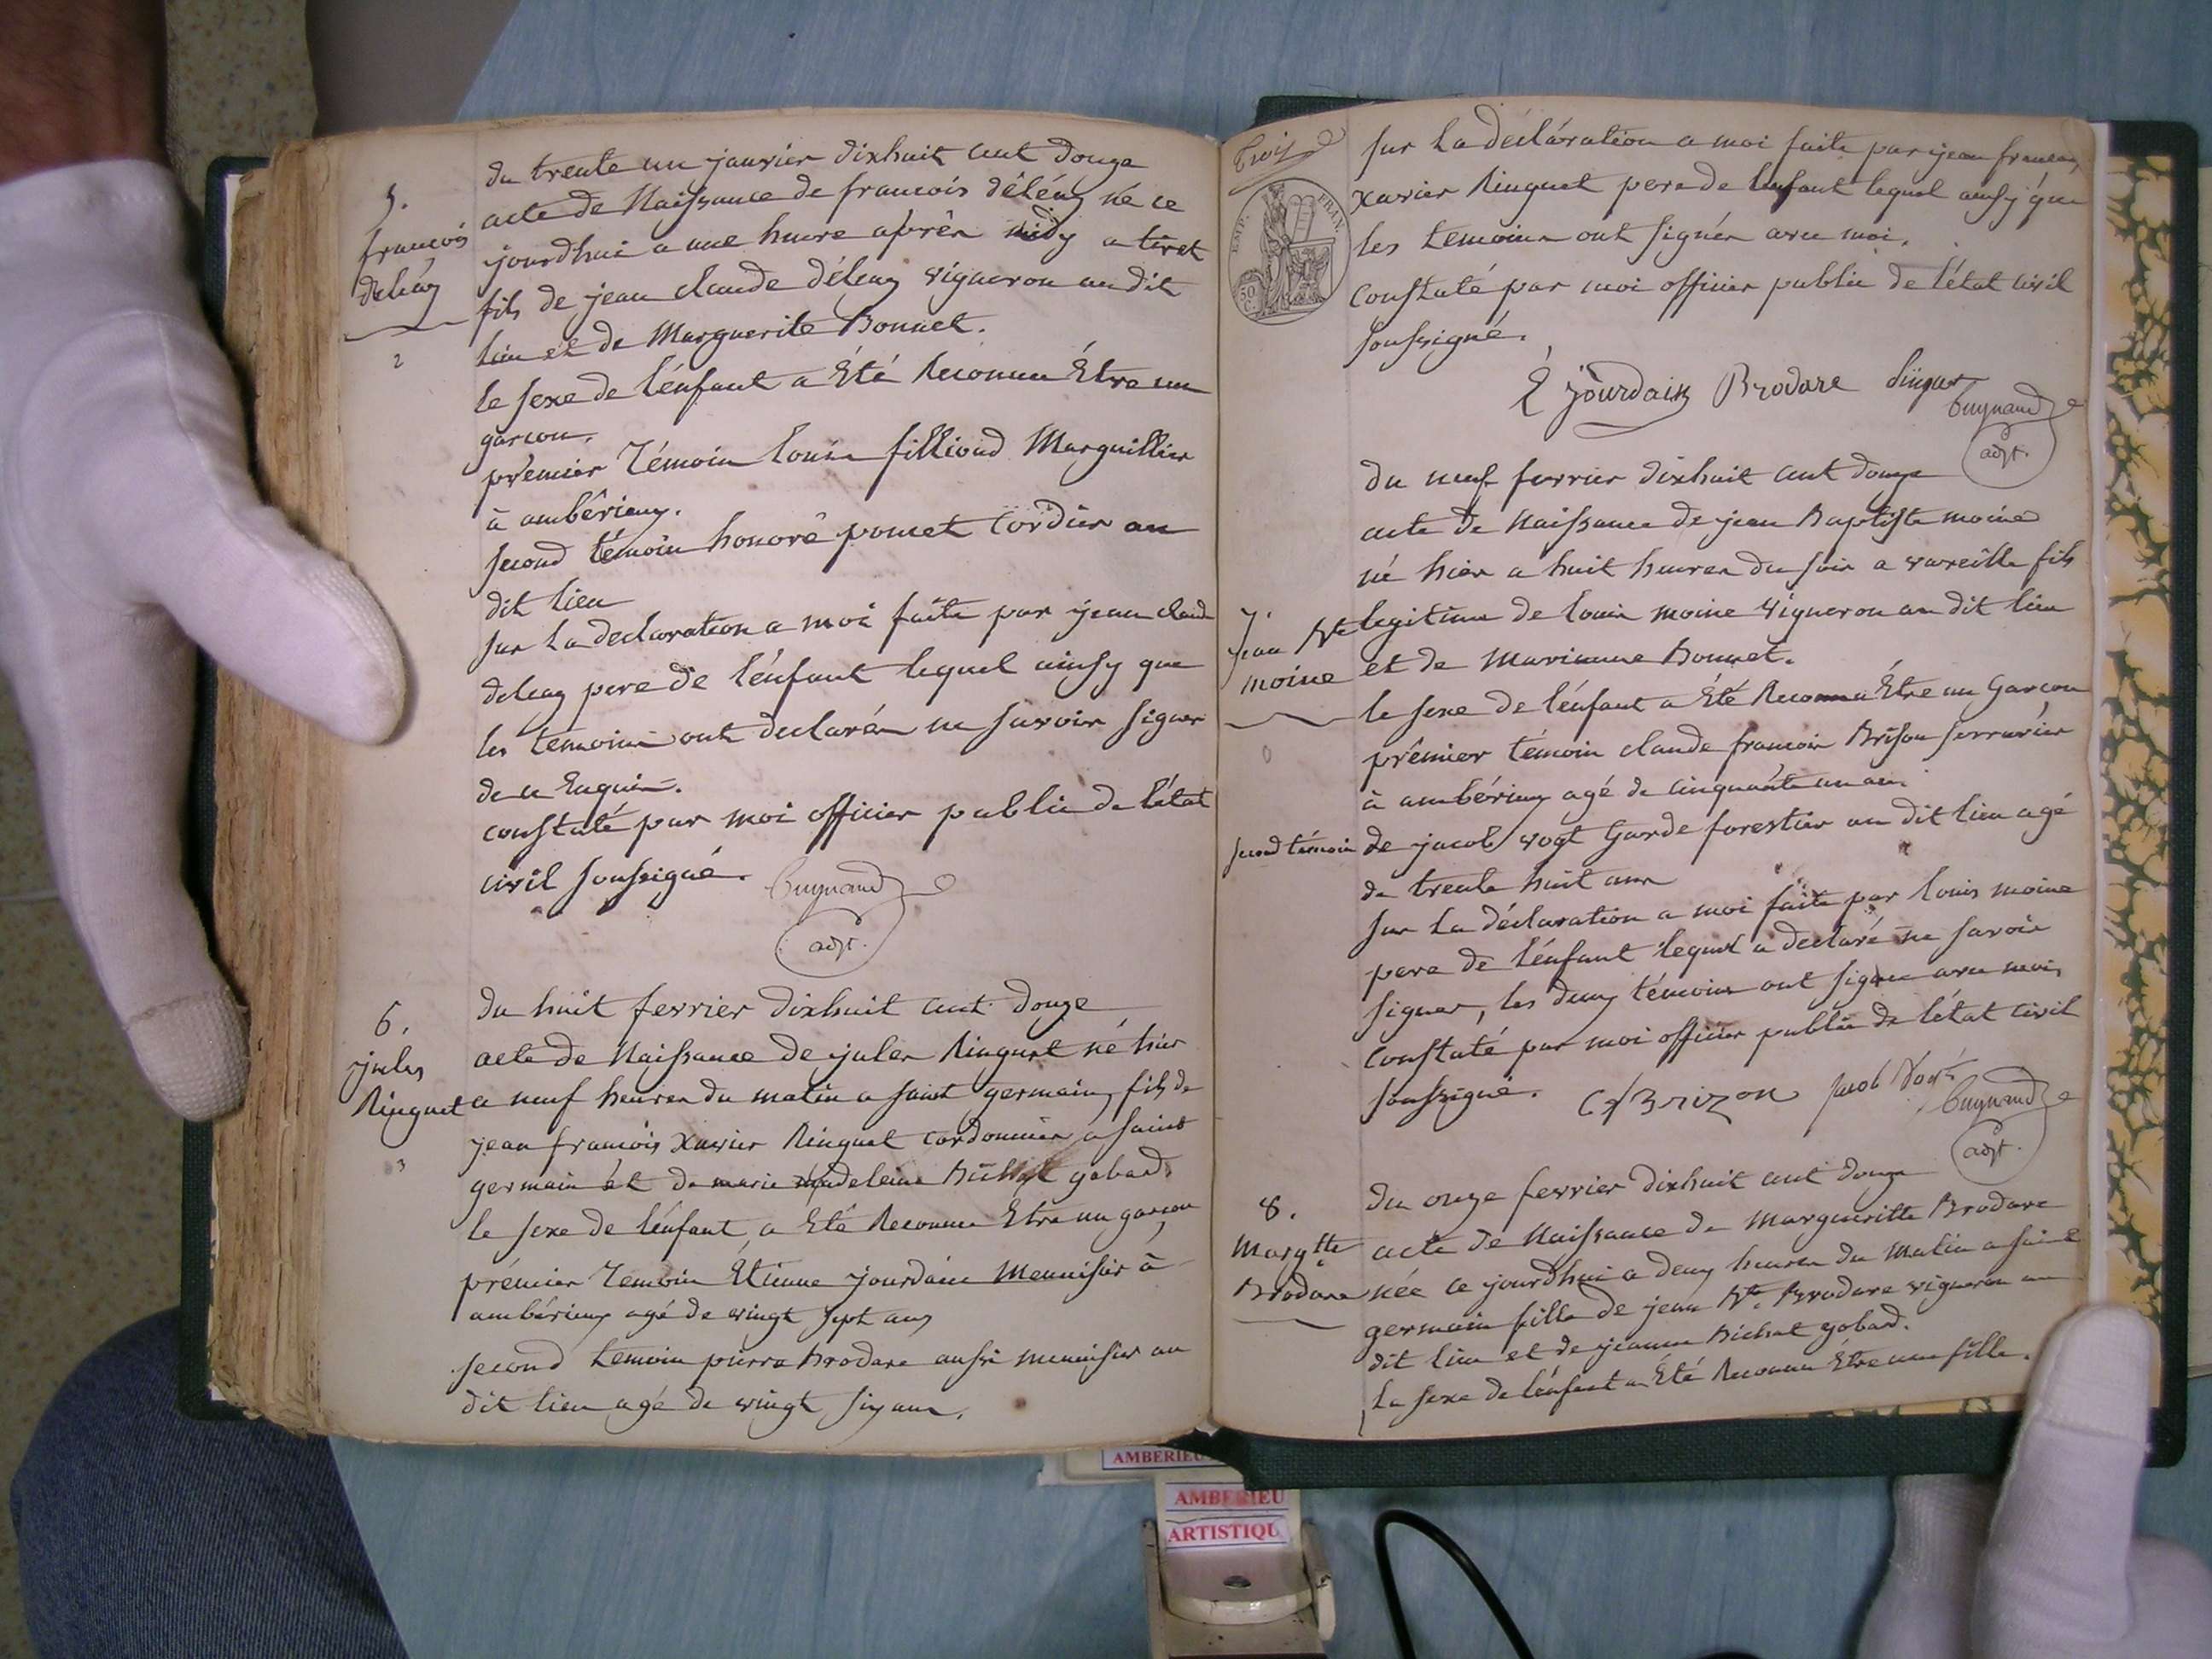 5.
francois
deléaz
2
du trente un janvier dixhuit cent douze
acte de Naissance de francois déléaz né ce
jourdhui a une heure après midy a tiret
fils de jean claude déléaz vigneron au dit
lieu et de Marguerite Bonnet.
le sexe de l'énfant a Été Reconnu Étre un
garcon.
prémier Témoin louis fillioud Marguillier
à ambérieux.
second témoin honoré pomet Cordier au
dit lieu
sur la declaration a moi faite par jean claude
deléaz pere de l'énfant lequel ainsy que
les temoins ont declarés ne savoir signer
de ce Enquis.
constaté par moi officier public de l'état
civil soussigné.
Cuynaud
adjt.
6.
jules
Ringuet
3
du huit fevrier dixhuit cent douze
acte de Naissance de jules Ringuet né hier
a neuf heures du matin a saint germain, fils de
jean francois Xavier Ringuet cordonnier a saint
germain et de marie madeleine Bichat gobard.
le sexe de l'énfant, a Été Reconnu Etre un garcon,
prémier Temoin Étienne jourdain Menuisier à
ambérieux agé de vingt sept ans
second temoin pierre Brodare aussi menuisier au
dit lieu agé de vingt six ans.
Trois
EMP. FRAN.
50 C.
sur la déclaration a moi faite par jean francois
Xavier Ringuet pere de l'enfant lequel ainsy que
les temoins ont signés avec moi.
Constaté par moi officier public de l'état civil
soussigné.
E jourdain Brodare Ringuet
Cuynaud
adjt.
du neuf fevrier dixhuit cent douze
acte de Naissance de jean Baptiste moine
né hier a huit heures du soir a vareille fils
7.
jean Bte
moine
0
legitime de louis moine vigneron au dit lieu
et de Marianne Bonnet.
le sexe de l'énfant a Été Reconnu Être un Garcon,
prémier témoin claude francois Brison serrurier
à ambérieux agé de cinquante un ans.
second témoin de jacob vogt Garde forestier au dit lieu agé
de trente huit ans
sur la déclaration a moi faite par louis moine
pere de l'énfant lequel a declaré ne savoir
signer, les deux témoins ont signé avec moi,
constaté par moi officier public de l'état civil
soussigné.
Cf Brizon Jacob Vogt
Cuynaud
adjt.
8.
Margtte
Brodare
du onze fevrier dixhuit cent douze
acte de Naissance de Margueritte Brodare
née ce jourdhui a deux heures du Matin a saint
germain fille de jean Bte. Brodare vigneron au
dit lieu et de jeanne Bichat gobard.
le sexe de l'énfant a Été Reconnu Être une fille.
AMBERIEU
AMBERIEU
ARTISTIQU